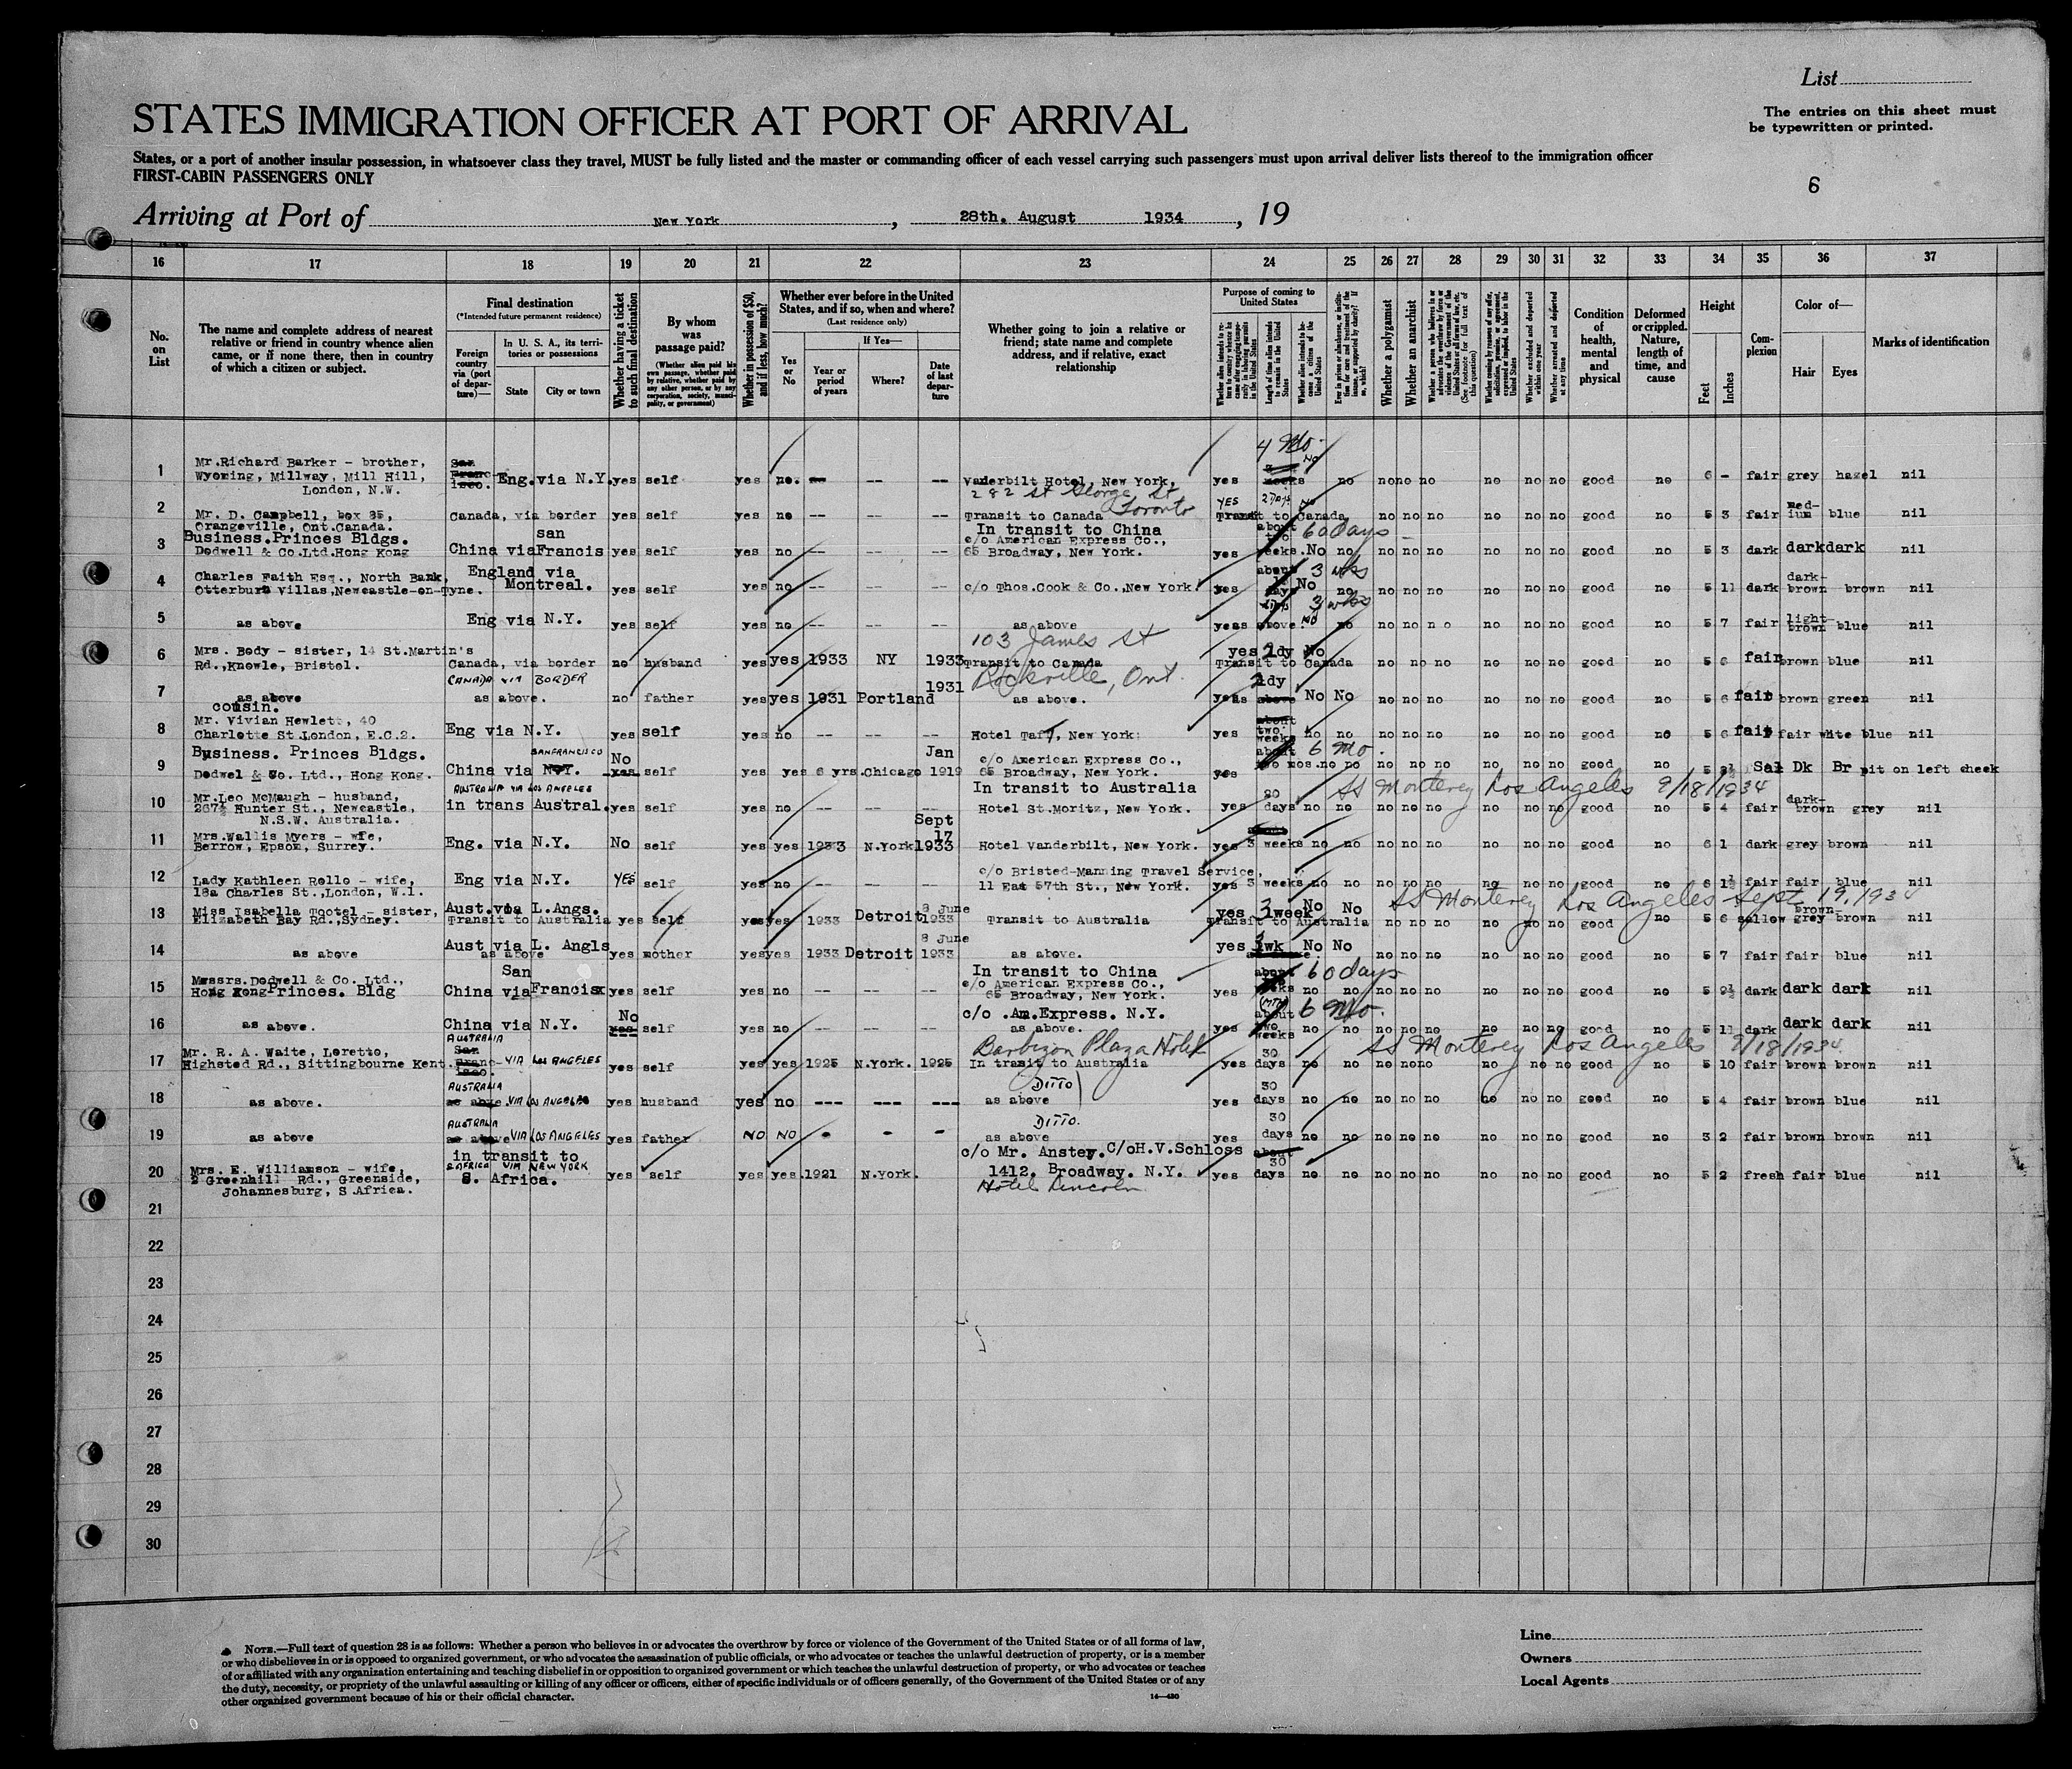 List
STATES IMMIGRATION OFFICER AT PORT OF ARRIVAL
The entries on this sheet must
be typewritten or printed.
States, or a port of another insular possession, in whatsoever class they travel, MUST be fully listed and the master or commanding officer of each vessel carrying such passengers must upon arrival deliver lists thereof to the immigration officer
FIRST-CABIN PASSENGERS ONLY
6
Arriving at Port of New York, 28th. August 1934, 19
16 17 18 19 20 21 22 23 24 25 26 27 28 29 30 31 32 33 34 35 36 37
No. on List
The name and complete address of nearest
relative or friend in country whence alien
came, or if none there, then in country
of which a citizen or subject.
Final destination
(*Intended future permanent residence)
Foreign country via (port of departure)—
In U. S. A., its territories or possessions
State
City or town
Whether having a ticket to such final destination
By whom was passage paid?
(Whether alien paid his own passage, whether paid by relative, whether paid by any other person, or by any corporation, society, municipality, or government)
Whether in possession of $50, and if less, how much?
Whether ever before in the United States, and if so, when and where?
(Last residence only)
Yes or No
If Yes—
Year or period of years
Where?
Date of last departure
Whether going to join a relative or
friend; state name and complete
address, and if relative, exact
relationship
Purpose of coming to United States
Length of time alien intends to remain in the United States
Whether alien intends to become a citizen of the United States
Whether a polygamist
Whether an anarchist
Whether excluded and deported within one year
Whether arrested and deported at any time
Condition of health, mental and physical
Deformed or crippled. Nature, length of time, and cause
Height
Feet
Inches
Complexion
Color of—
Hair
Eyes
Marks of identification
1 Mr.Richard Barker - brother,
Wyoming, Millway, Mill Hill,
London, N.W.
Eng.via N.Y. yes self yes no. -- -- Vanderbilt Hotel, New York, yes 4 Mo. No no no no no no no no good no 6 - fair grey hazel nil
282 St George St
Toronto
2 Mr. D. Campbell, box 85,
Orangeville, Ont.Canada.
Canada, via border yes self yes no -- -- -- Transit to Canada YES 2 DAYS Transit to Canada no no no no no no good no 5 3 fair med-ium blue nil
3 Business.Princes Bldgs.
Dodwell & Co.Ltd.Hong Kong
China via San Francis yes self yes no -- -- -- In transit to China
c/o American Express Co.,
65 Broadway, New York.
yes about two weeks. 60 days No no no no no no no no good no 5 3 dark dark dark nil
4 Charles Faith Esq., North Bank,
Otterburn Villas,Newcastle-on-Tyne.
England via Montreal. yes self yes no -- -- -- c/o Thos.Cook & Co.,New York. yes about days 3 wks No no no no no no no no good no 5 11 dark dark-brown brown nil
5 as above Eng via N.Y. yes self yes no -- -- -- as above yes as above 3 wks NO no no no no no no no good no 5 7 fair light-brown blue nil
103 James St
6 Mrs. Body - sister, 14 St.Martin's
Rd.,Knowle, Bristol.
Canada, via border no husband yes yes 1933 NY 1933 Transit to Canada yes dy No Transit to Canada no no no no no no good no 5 6 fair brown blue nil
Rockville, Ont.
7 as above CANADA VIA BORDER as above. no father yes yes 1931 Portland 1931 as above. yes as above dy No No no no no no no no good no 5 6 fair brown green nil
8 cousin.
Mr. Vivian Hewlett, 40
Charlotte St.London, E.C.2.
Eng via N.Y. yes self yes no -- -- -- Hotel Taft, New York. yes about two weeks no no no no no no no no good no 5 6 fair fair white blue nil
9 Business. Princes Bldgs.
Dodwel & Co. Ltd., Hong Kong.
China via N.Y. SANFRANCISCO No yes self yes yes 6 yrs.Chicago Jan 1919 c/o American Express Co.,
65 Broadway, New York.
yes about two mos. 6 mo. no no no no no no no no good no 5 Sal Dk Br pit on left cheek
10 Mr.Leo McMaugh - husband,
267½ Hunter St., Newcastle,
N.S.W. Australia.
AUSTRALIA VIA LOS ANGELES
in trans Austral. yes self yes no -- -- -- In transit to Australia
Hotel St.Moritz, New York.
yes days no no SS Monterey Los Angeles 9/18/1934 no no no no no no good no 5 4 fair dark-brown grey nil
11 Mrs.Wallis Myers - wfe,
Berrow, Epsom, Surrey.
Eng. via N.Y. No self yes yes 1933 N.York Sept 17 1933 Hotel Vanderbilt, New York. yes 3 weeks no no no no no no no no good no 6 1 dark grey brown nil
12 Lady Kathleen Rollo - wife,
18a Charles St.,London, W.1.
Eng via N.Y. YES self yes no -- -- -- c/o Bristed-Manning Travel Service,
11 East 57th St., New York.
yes 3 weeks no no no no no no no no good no 6 1½ fair fair blue nil
13 Miss Isabella Tootel - sister,
Elizabeth Bay Rd.,Sydney.
Aust.via L.Angs.
Transit to Australia yes self yes yes 1933 Detroit 8 June 1933 Transit to Australia yes 3 week No No Transit to Australia SS Monterey Los Angeles Sept 19, 1934 no no no no no no good no 5 6 sallow brown-grey brown nil
14 as above Aust via L. Angls
as above yes mother yes yes 1933 Detroit 8 June 1933 as above. yes wk No No no no no no no no good no 5 7 fair fair blue nil
15 Messrs.Dodwell & Co. Ltd.,
Hong Kong Princes. Bldg
China via San Francis yes self yes no -- -- -- In transit to China
c/o American Express Co.,
65 Broadway, New York.
yes about weeks 60 days no no no no no no no no good no 5 9½ dark dark dark nil
16 as above. China via N.Y. No yes self yes no -- -- -- c/o .Am.Express. N.Y.
as above.
yes about two weeks 6 Mo. no no no no no no no no good no 5 11 dark dark dark nil
17 Mr. R. A. Waite, Loretto,
Highsted Rd., Sittingbourne Kent.
AUSTRALIA VIA LOS ANGELES yes self yes yes 1925 N.York. 1925 Barbizon Plaza Hotel
In transit to Australia
yes 30 days no no SS Monterey Los Angeles 9/18/1934 no no no no no no good no 5 10 fair brown brown nil
18 as above. AUSTRALIA as above VIA LOS ANGELES yes husband yes no --- --- --- DITTO
as above yes 30 days no no no no no no no no good no 5 4 fair brown blue nil
19 as above AUSTRALIA as above VIA LOS ANGELES yes father NO NO - - - DITTO.
as above yes 30 days no no no no no no no no good no 3 2 fair brown brown nil
20 Mrs. E. Williamson - wife,
2 Greenhill Rd., Greenside,
Johannesburg, S.Africa.
in transit to
S AFRICA VIA NEW YORK
S. Africa. yes self yes yes.1921 N.York. c/o Mr. Anstey. C/oH.V.Schloss
1412. Broadway. N.Y.
Hotel Lincoln
yes about 30 days no no no no no no no no good no 5 2 fresh fair blue nil
21
22
23
24
25
26
27
28
29
30
NOTE.—Full text of question 28 is as follows: Whether a person who believes in or advocates the overthrow by force or violence of the Government of the United States or of all forms of law,
or who disbelieves in or is opposed to organized government, or who advocates the assassination of public officials, or who advocates or teaches the unlawful destruction of property, or is a member
of or affiliated with any organization entertaining and teaching disbelief in or opposition to organized government or which teaches the unlawful destruction of property, or who advocates or teaches
the duty, necessity, or propriety of the unlawful assaulting or killing of any officer or officers, either of specific individuals or of officers generally, of the Government of the United States or of any
other organized government because of his or their official character.
14—430
Line
Owners
Local Agents